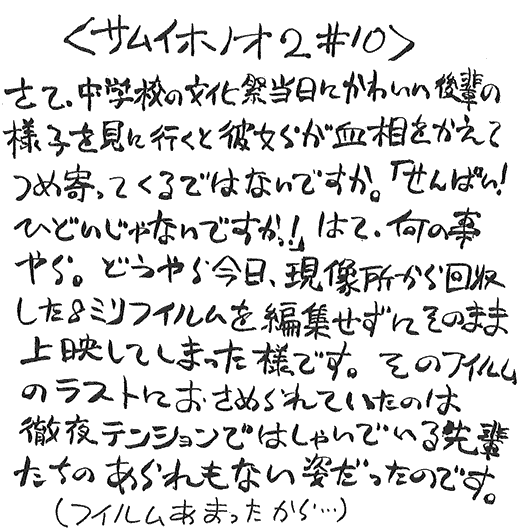 <サムイホノオ2#10>
さて、中学校の文化祭当日にかわいい後輩の
様子を見に行くと彼女らが血相をかえて
つめ寄ってくるではないですか。「せんぱい!
ひどいじゃないですか!」はて、何の事
やら。どうやら今日、現像所から回収
した8ミリフィルムを編集せずにそのまま
上映してしまった様です。そのフィルム
のラストにおさめられていたのは
徹夜テンションではしゃいでいる先輩
たちのあられもない姿だったのです。
(フィルムあまったから…)